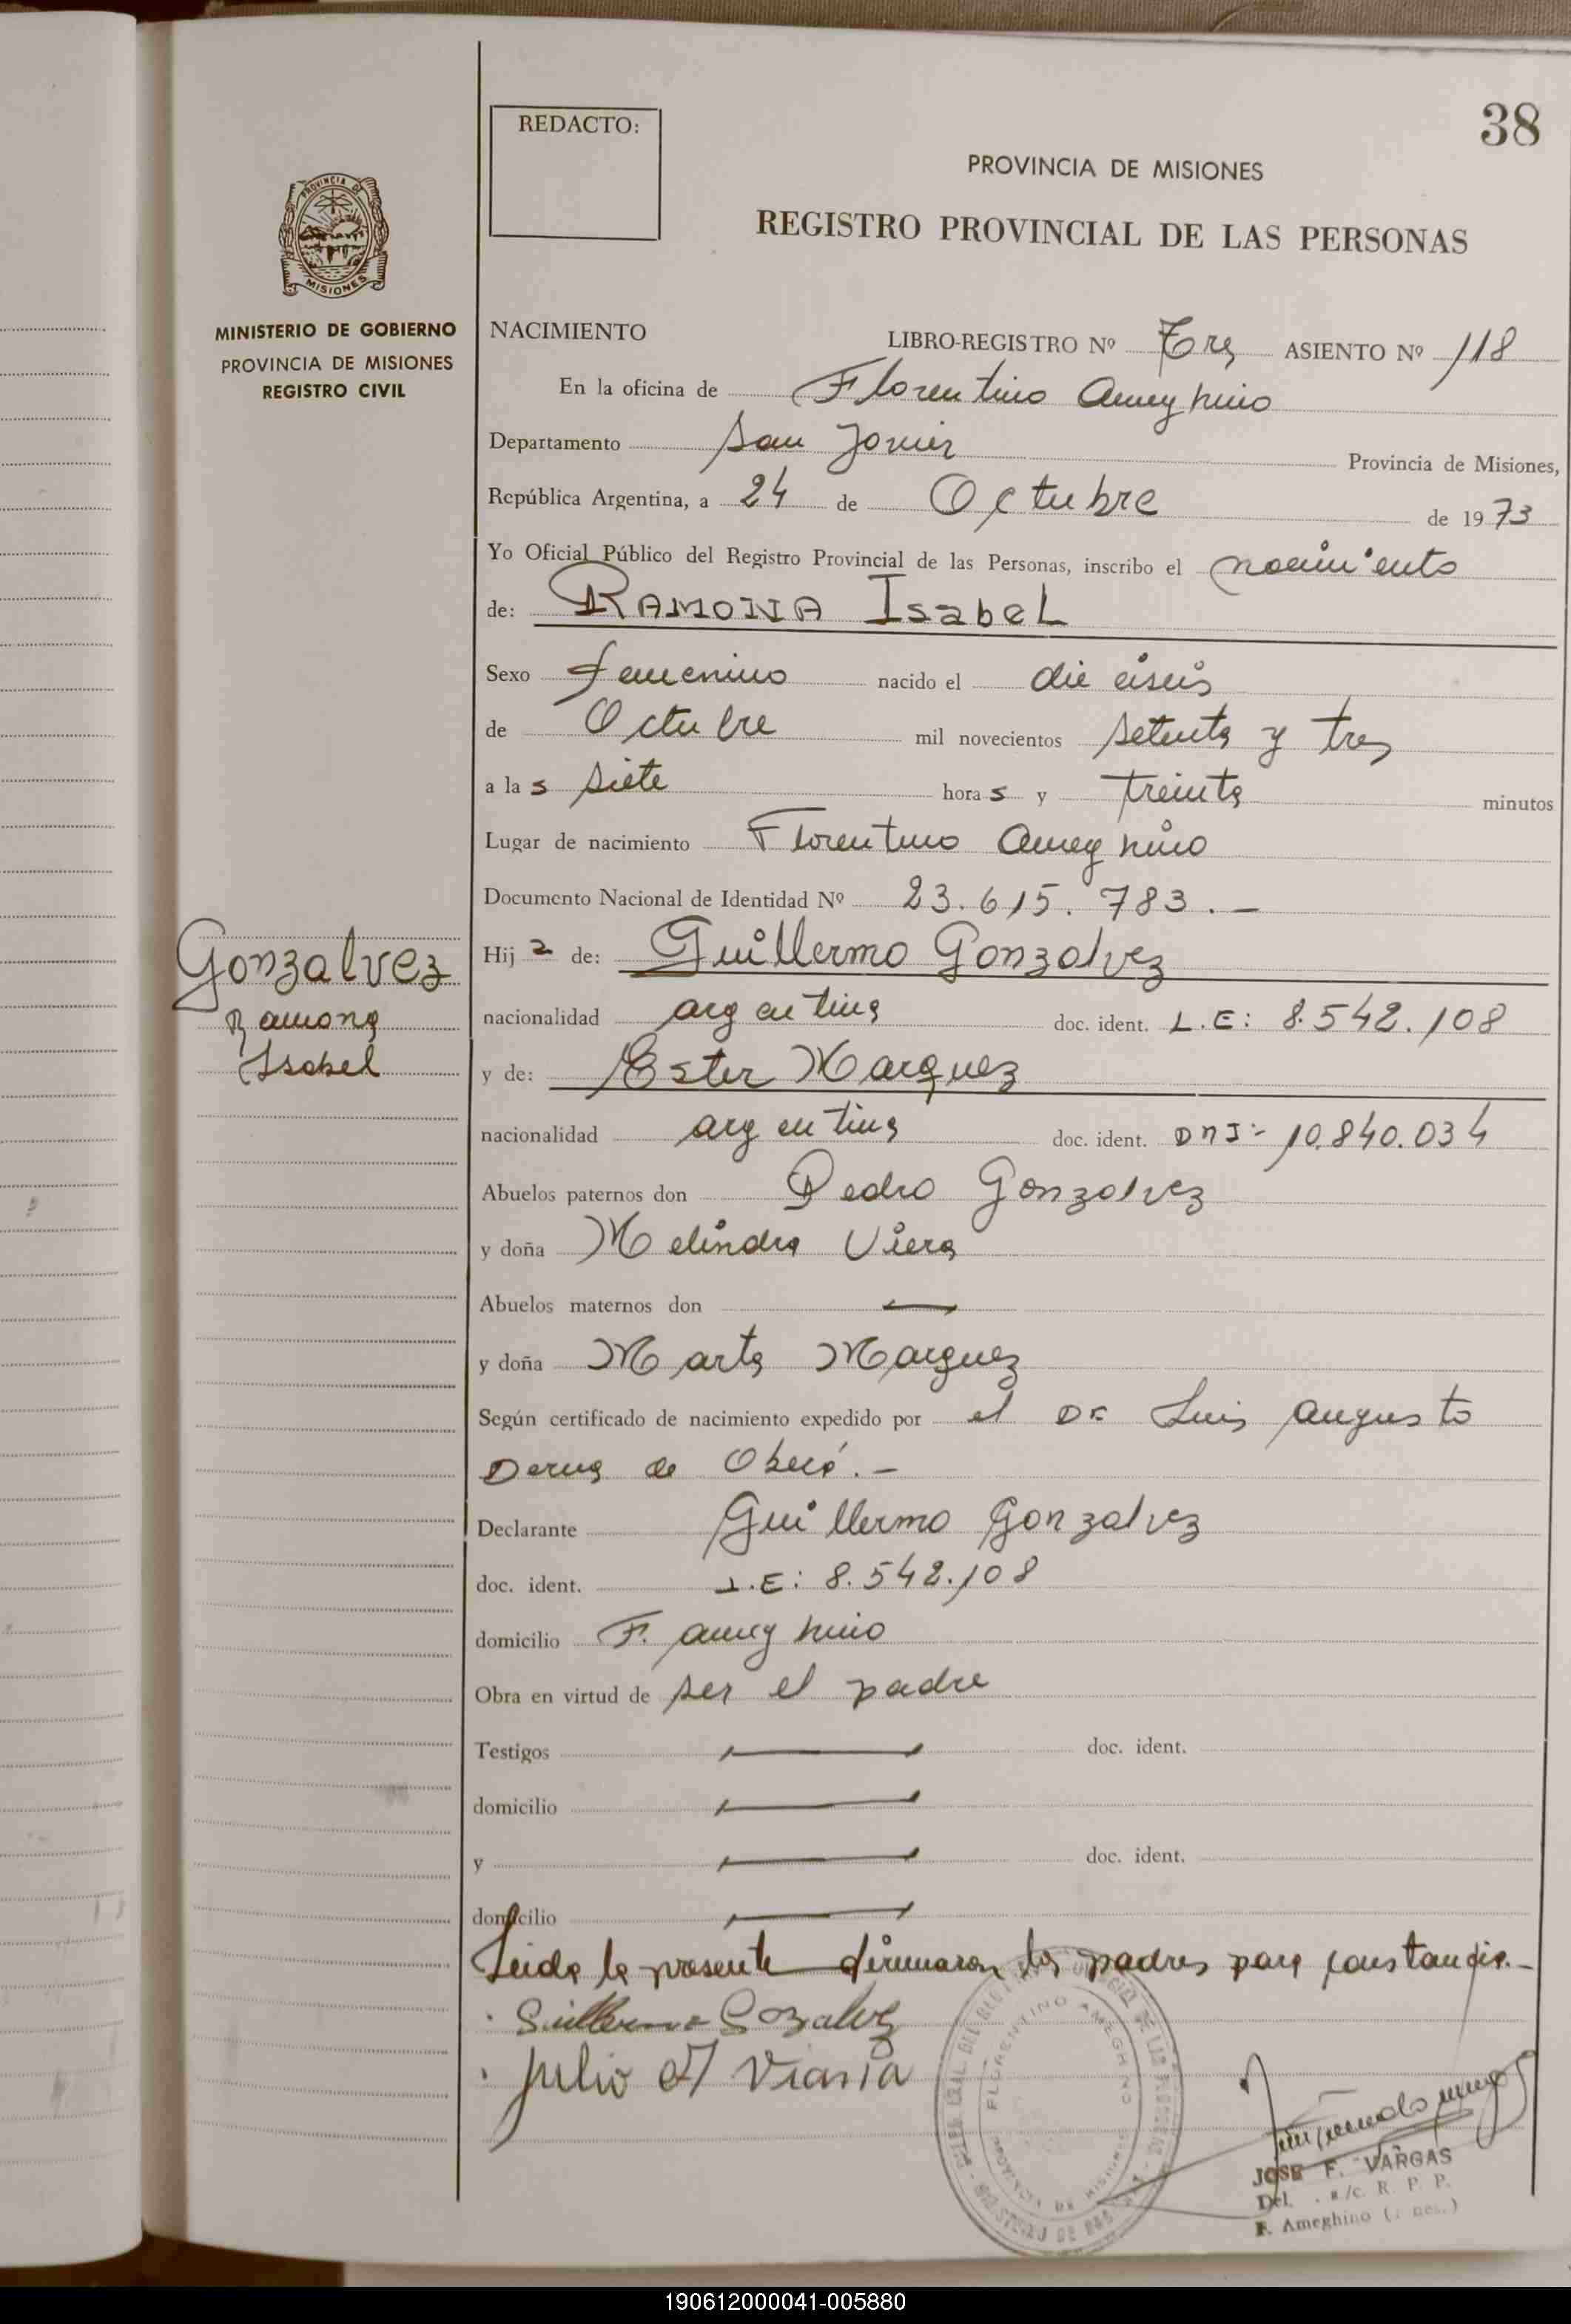 38
REDACTO:
PROVINCIA DE MISIONES
REGISTRO PROVINCIAL DE LAS PERSONAS
PROVINCIA DE
MISIONES
MINISTERIO DE GOBIERNO
PROVINCIA DE MISIONES
REGISTRO CIVIL
NACIMIENTO LIBRO-REGISTRO Nº Tres ASIENTO Nº 118
En la oficina de Florentino Ameghino
Departamento San Javier Provincia de Misiones,
República Argentina, a 24 de Octubre de 1973
Yo Oficial Público del Registro Provincial de las Personas, inscribo el nacimiento
de: RAMONA IsabeL
Sexo femenino nacido el dieciseis
de Octubre mil novecientos setenta y tres
a las siete horas y treinta minutos
Lugar de nacimiento Florentino Ameghino
Documento Nacional de Identidad Nº 23.615.783.-
Gonzalvez
Ramona
Isabel
Hija de: Guillermo Gonzalvez
nacionalidad argentina doc. ident. L.E: 8.542.108
y de: Ester Marquez
nacionalidad argentina doc. ident. DNI:- 10.840.034
Abuelos paternos don Pedro Gonzalvez
y doña Melindra Viera
Abuelos maternos don —
y doña Marta Marquez
Según certificado de nacimiento expedido por el Dr Luis Augusto
Derna de Oberá.-
Declarante Guillermo Gonzalvez
doc. ident. L.E: 8.542.108
domicilio F. Ameghino
Obra en virtud de ser el padre
Testigos — doc. ident.
domicilio —
y — doc. ident.
domicilio —
Leida la presente firmaron los padres para constancia.-
Guillermo Gozalvez
Julio
FLORENTINO AMEGHINO
PROVINCIA DE MISIONES
JOSE F. VARGAS
Del. e/c. R. P. P.
F. Ameghino
190612000041-005880